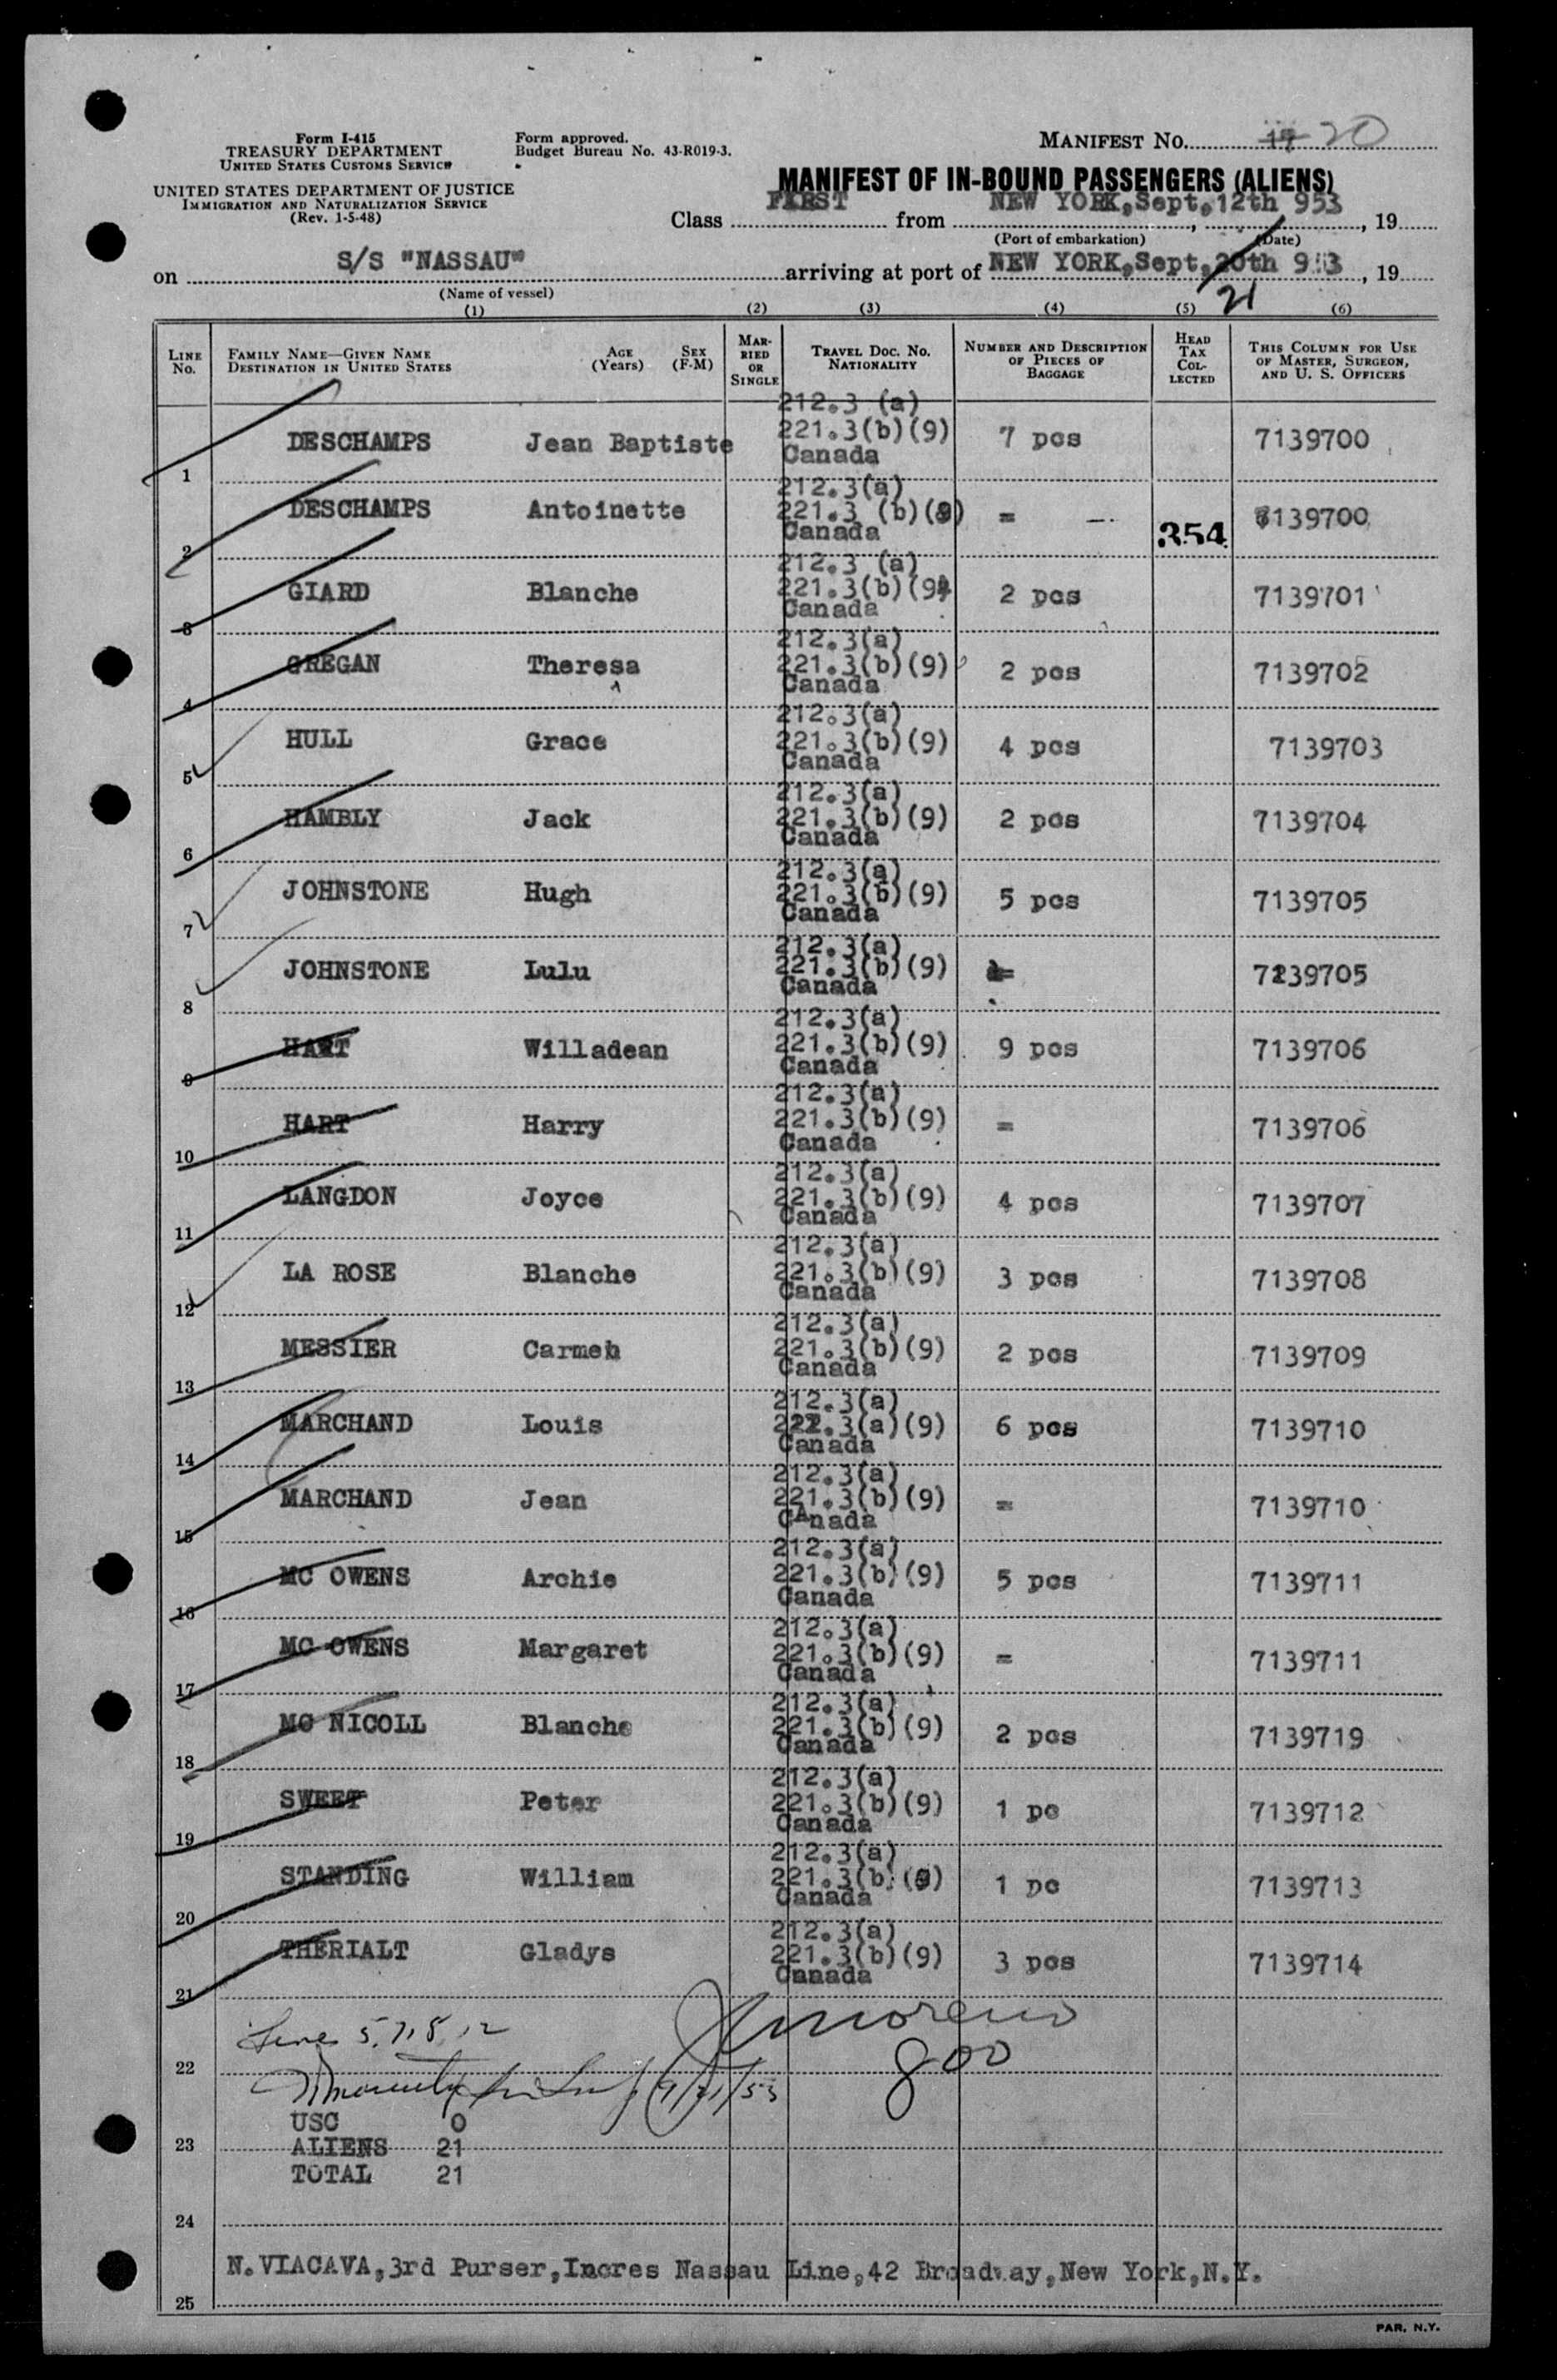 Form I-415
TREASURY DEPARTMENT
UNITED STATES CUSTOMS SERVICE
UNITED STATES DEPARTMENT OF JUSTICE
IMMIGRATION AND NATURALIZATION SERVICE
(Rev. 1-5-48)
Form approved.
Budget Bureau No. 43-R019-3.
MANIFEST No. 20
MANIFEST OF IN-BOUND PASSENGERS (ALIENS)
Class FIRST from NEW YORK, Sept, 12th 953, 19
(Port of embarkation) (Date)
on S/S "NASSAU" arriving at port of NEW YORK, Sept, 20th 953, 19
21
(Name of vessel)
(1) (2) (3) (4) (5) (6)
LINE No. FAMILY NAME—GIVEN NAME DESTINATION IN UNITED STATES AGE (Years) SEX (F-M) MARRIED OR SINGLE TRAVEL DOC. No. NATIONALITY NUMBER AND DESCRIPTION OF PIECES OF BAGGAGE HEAD TAX COLLECTED THIS COLUMN FOR USE OF MASTER, SURGEON, AND U. S. OFFICERS
1 DESCHAMPS Jean Baptiste 212.3 (a) 221.3(b)(9) Canada 7 pcs 7139700
2 DESCHAMPS Antoinette 212.3(a) 221.3 (b)(9) Canada = — 354 7139700
3 GIARD Blanche 212.3 (a) 221.3(b)(9) Canada 2 pcs 7139701
4 GREGAN Theresa 212.3(a) 221.3(b)(9) Canada 2 pcs 7139702
5 HULL Grace 212.3(a) 221.3(b)(9) Canada 4 pcs 7139703
6 HAMBLY Jack 212.3(a) 221.3(b)(9) Canada 2 pcs 7139704
7 JOHNSTONE Hugh 212.3(a) 221.3(b)(9) Canada 5 pcs 7139705
8 JOHNSTONE Lulu 212.3(a) 221.3(b)(9) Canada = 7139705
9 HART Willadean 212.3(a) 221.3(b)(9) Canada 9 pcs 7139706
10 HART Harry 212.3(a) 221.3(b)(9) Canada = 7139706
11 LANGDON Joyce 212.3(a) 221.3(b)(9) Canada 4 pcs 7139707
12 LA ROSE Blanche 212.3(a) 221.3(b)(9) Canada 3 pcs 7139708
13 MESSIER Carmen 212.3(a) 221.3(b)(9) Canada 2 pcs 7139709
14 MARCHAND Louis 212.3(a) 221.3(a)(9) Canada 6 pcs 7139710
15 MARCHAND Jean 212.3(a) 221.3(b)(9) CAnada = 7139710
16 MC OWENS Archie 212.3(a) 221.3(b)(9) Canada 5 pcs 7139711
17 MC OWENS Margaret 212.3(a) 221.3(b)(9) Canada = 7139711
18 MC NICOLL Blanche 212.3(a) 221.3(b)(9) Canada 2 pcs 7139719
19 SWEET Peter 212.3(a) 221.3(b)(9) Canada 1 pc 7139712
20 STANDING William 212.3(a) 221.3(b)(9) Canada 1 pc 7139713
21 THERIALT Gladys 212.3(a) 221.3(b)(9) Canada 3 pcs 7139714
Lines 5, 7, 8, 12
Moreno
800
22
9/21/53
USC 0
23 ALIENS 21
TOTAL 21
24
N.VIACAVA,3rd Purser,Incres Nassau Line,42 Broadway,New York,N.Y.
25
PAR, N.Y.